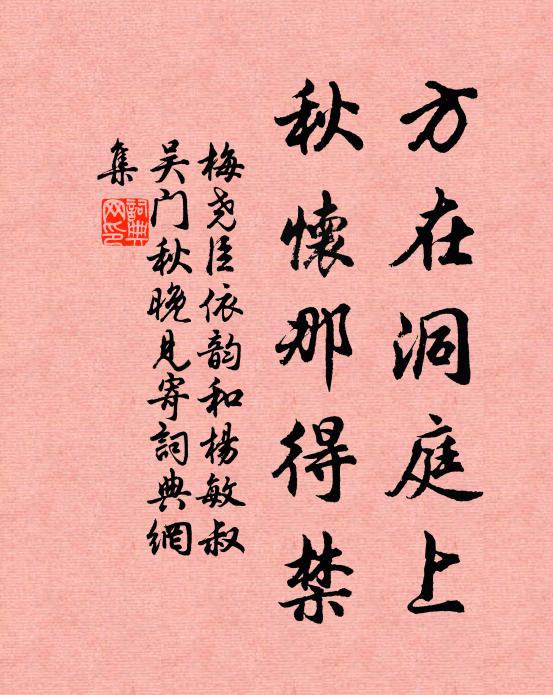 方在洞庭上
秋懷那得禁
梅尧臣依韵和楊敏叔
吴门秋晚見寄詞典網
集
詞典
网印